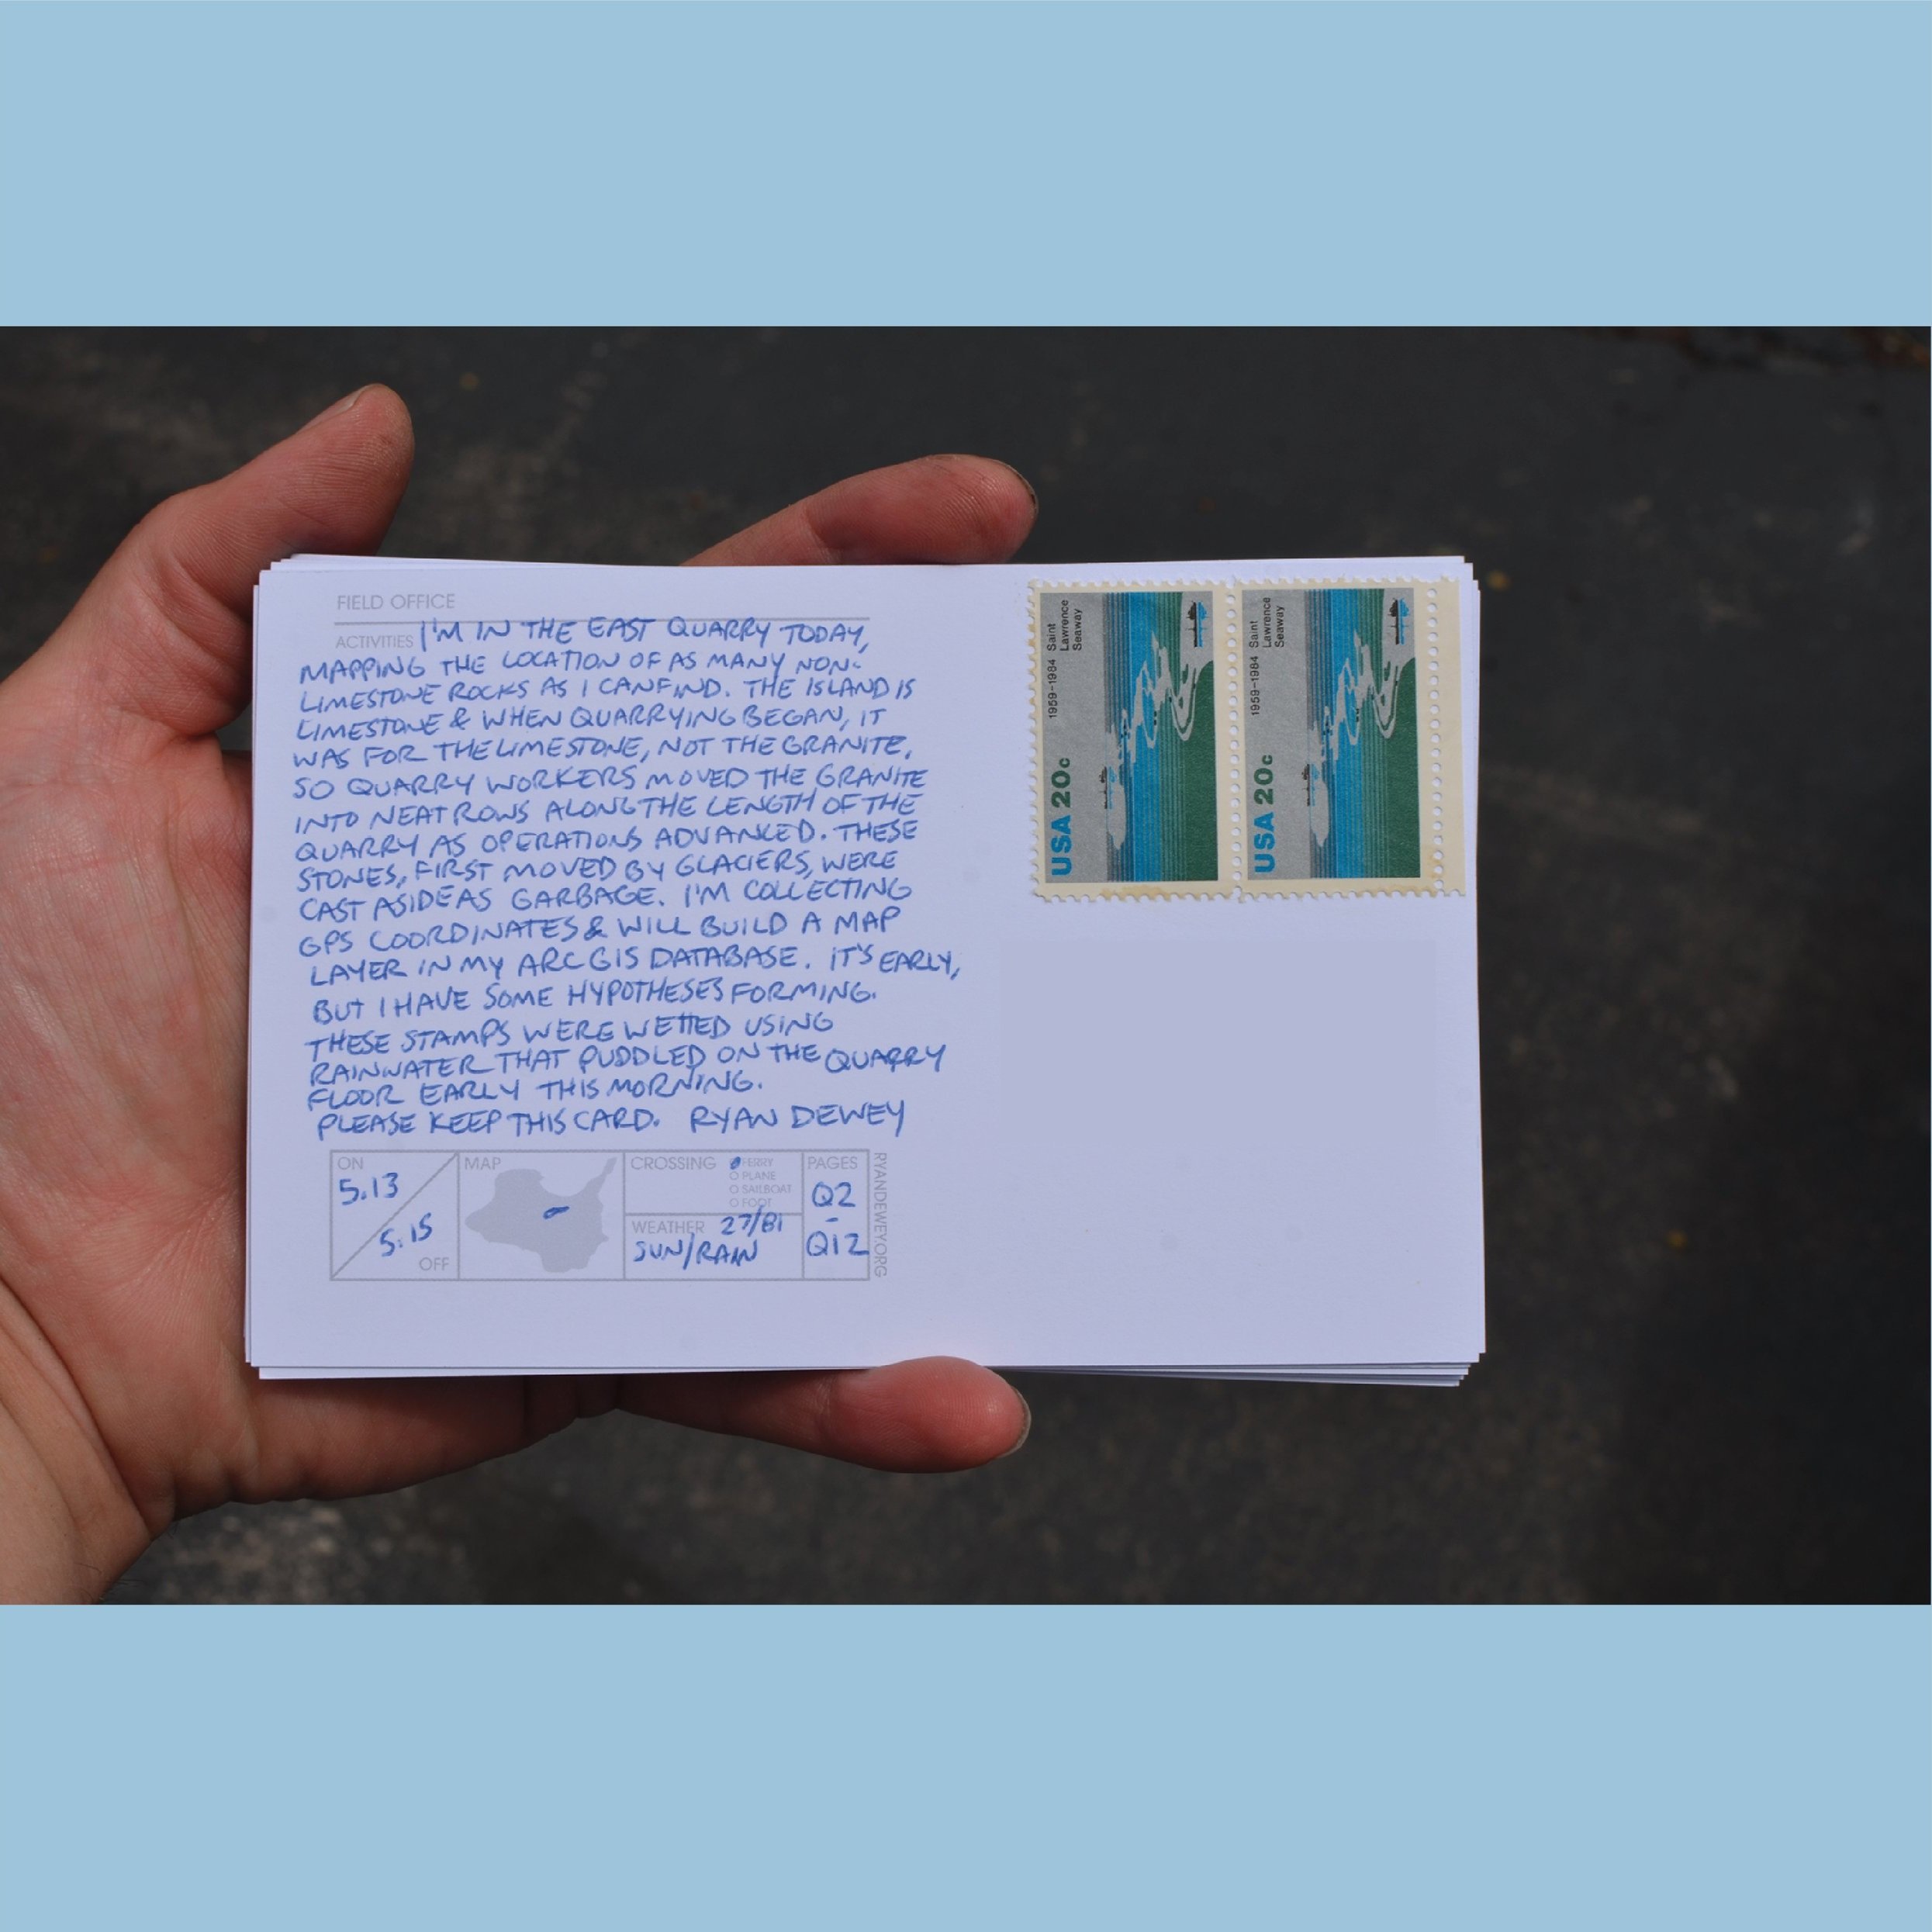 FIELD OFFICE
ACTIVITIES I'M IN THE EAST QUARRY TODAY,
MAPPING THE LOCATION OF AS MANY NON-
LIMESTONE ROCKS AS I CAN FIND. THE ISLAND IS
LIMESTONE & WHEN QUARRYING BEGAN, IT
WAS FOR THE LIMESTONE, NOT THE GRANITE,
SO QUARRY WORKERS MOVED THE GRANITE
INTO NEAT ROWS ALONG THE LENGTH OF THE
QUARRY AS OPERATIONS ADVANCED. THESE
STONES, FIRST MOVED BY GLACIERS, WERE
CAST ASIDE AS GARBAGE. I'M COLLECTING
GPS COORDINATES & WILL BUILD A MAP
LAYER IN MY ARCGIS DATABASE. IT'S EARLY,
BUT I HAVE SOME HYPOTHESES FORMING.
THESE STAMPS WERE WETTED USING
RAINWATER THAT PUDDLED ON THE QUARRY
FLOOR EARLY THIS MORNING.
PLEASE KEEP THIS CARD. RYAN DEWEY
ON
5.13
5.15
OFF
MAP
CROSSING
FERRY
PLANE
SAILBOAT
FOOT
WEATHER 27/81
SUN/RAIN
PAGES
Q2
-
Q12
RYANDEWEY.ORG
USA 20c
1959-1984
Saint
Lawrence
Seaway
USA 20c
1959-1984
Saint
Lawrence
Seaway